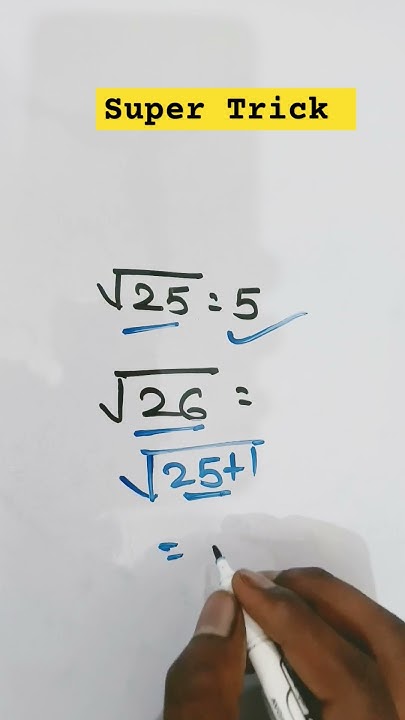 Super Trick
√25 = 5
√26 =
√25+1
=